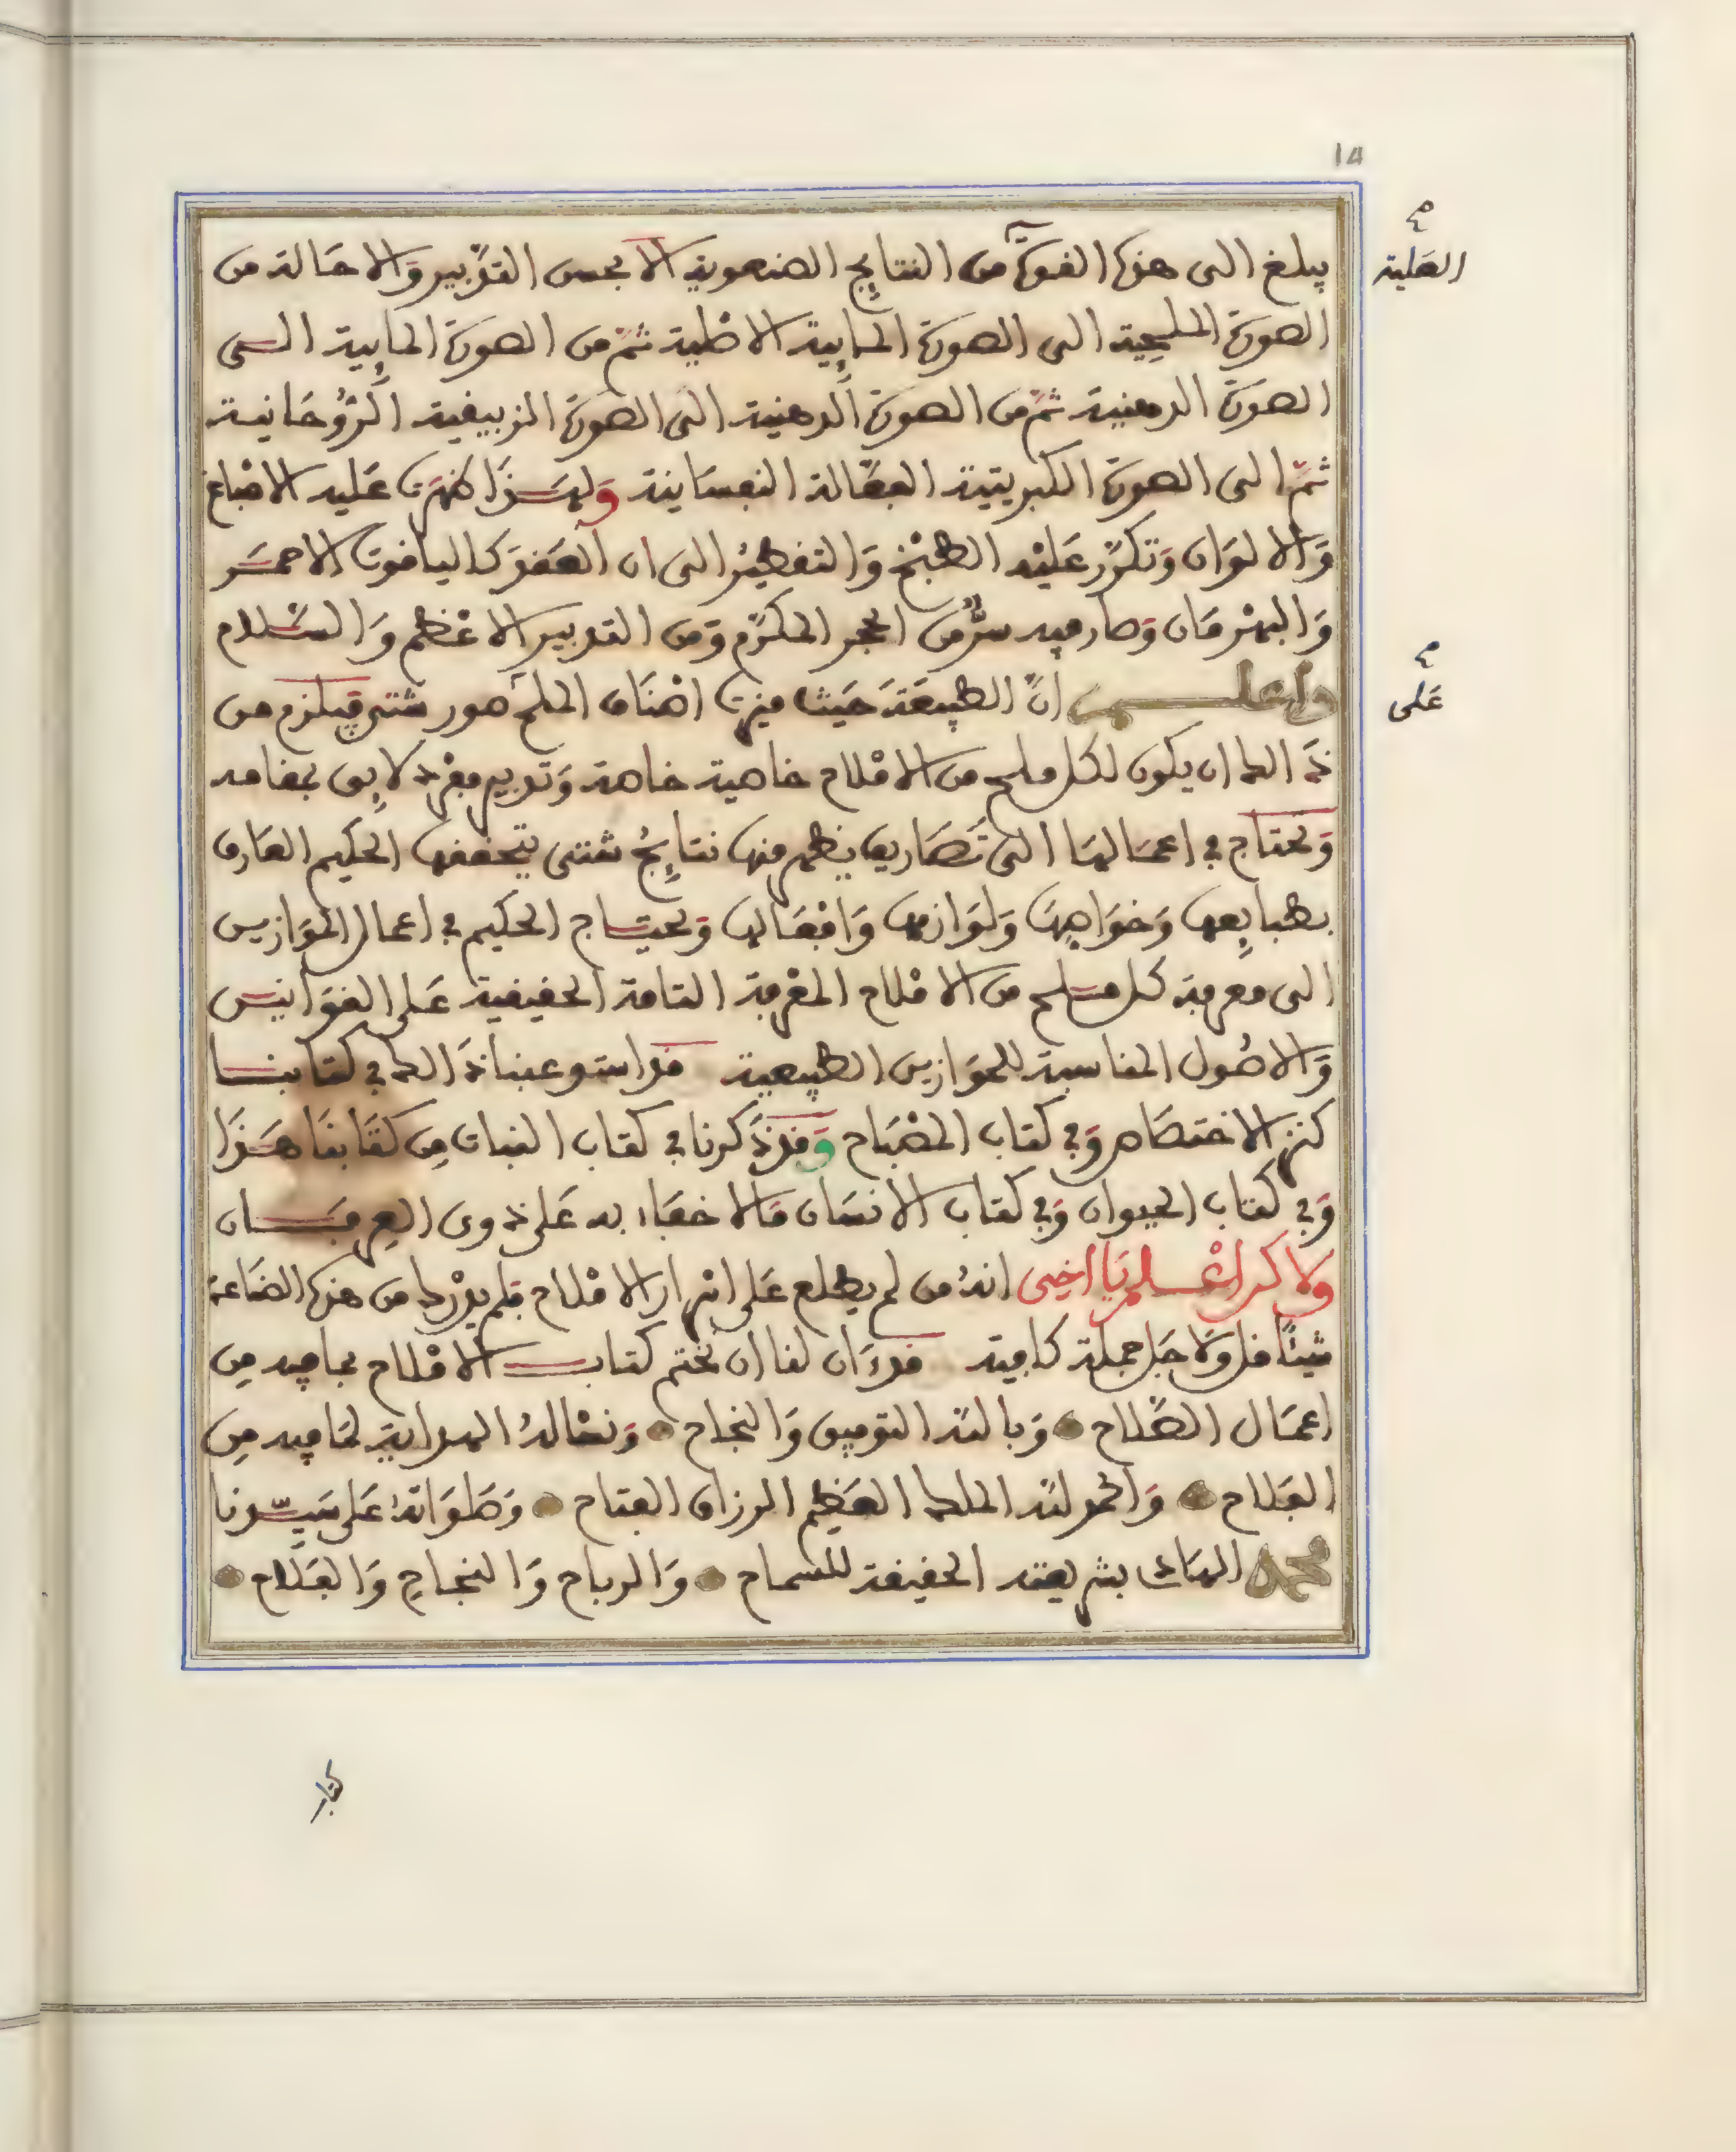 14
يبلغ الى هذه القوة من النتايج الصنعوية الا بحسن التدبير والاحالة من
العملية
الصورة الملحية الى الصورة المايية الاصلية ثم من الصورة المايية الى
الصورة الدهنية ثم من الصورة الدهنية الى الصورة الزيبقية الروحانية
ثم الى الصورة الكبريتية الفعالة النفسانية ولهذا ظهرت عليه الاصباغ
والالوان وتكرر عليه الطبخ والتقطير الى ان انعقد كالياقوت الاحمر
والبهرمان وصار فيه سر من الحجر المكرم ومن التدبير الاعظم والسلام
واعلم ان الطبيعة حيث ميزت اصناف الملح صور شتى فيلزم من
على
ذالك ان يكون لكل ملح من الاملاح خاصية خاصة وتدبير مفرد لايق بمقامه
وتحتاج في اعمالها الى تصاريف يظهر منها نتايج شتى يتحققها الحكيم العارف
بطبايعها وخواصها ولوازمها وافعالها ويحتاج الحكيم في اعمال الموازين
الى معرفة كل ملح من الاملاح المعرفة التامة الحقيقية على القوانين
والاصول المناسبة للموازين الطبيعية قد استوعبنا ذالك في كتابنا
كنز الاختصاص وفي كتاب المصباح وقد ذكرنا في كتاب النبات من كتابنا هذا
وفي كتاب الحيوان وفي كتاب الانسان مالا خفاء به على ذوي العرفان
ولاكن اعلم يا اخي انه من لم يطلع على اسرار الاملاح فلم يدرك من هذه الصناعة
شيئا قل ولا جل جملة كافية قد ءان لنا ان نختم كتاب الاملاح بما فيه من
اعمال الصلاح وبالله التوفيق والنجاح ونساله الهداية لما فيه من
الفلاح والحمد لله الملك العظيم الرزاق الفتاح وصلواته على سيدنا
محمد الهادي بشريعته الحقيقة للسماح والرباح والنجاح والفلاح
كتاب